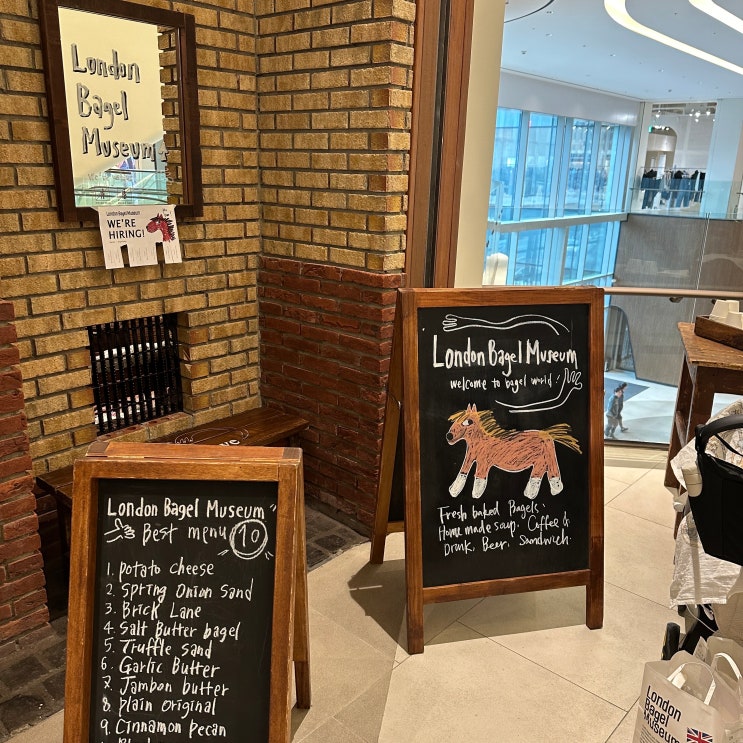 London
Bagel
Museum
London Bagel Museum
WE'RE
HIRING!
London Bagel Museum
welcome to bagel world!
Fresh baked Bagels.
Home made soup. Coffee &
Drink, Beer, Sandwich.
"London Bagel Museum"
Best menu 10
1. potato cheese
2. Spring onion sand
3. Brick Lane
4. Salt Butter bagel
5. Truffle sand
6. Garlic Butter
7. Jambon butter
8. plain original
9. Cinnamon pecan
London
Bagel
Museum